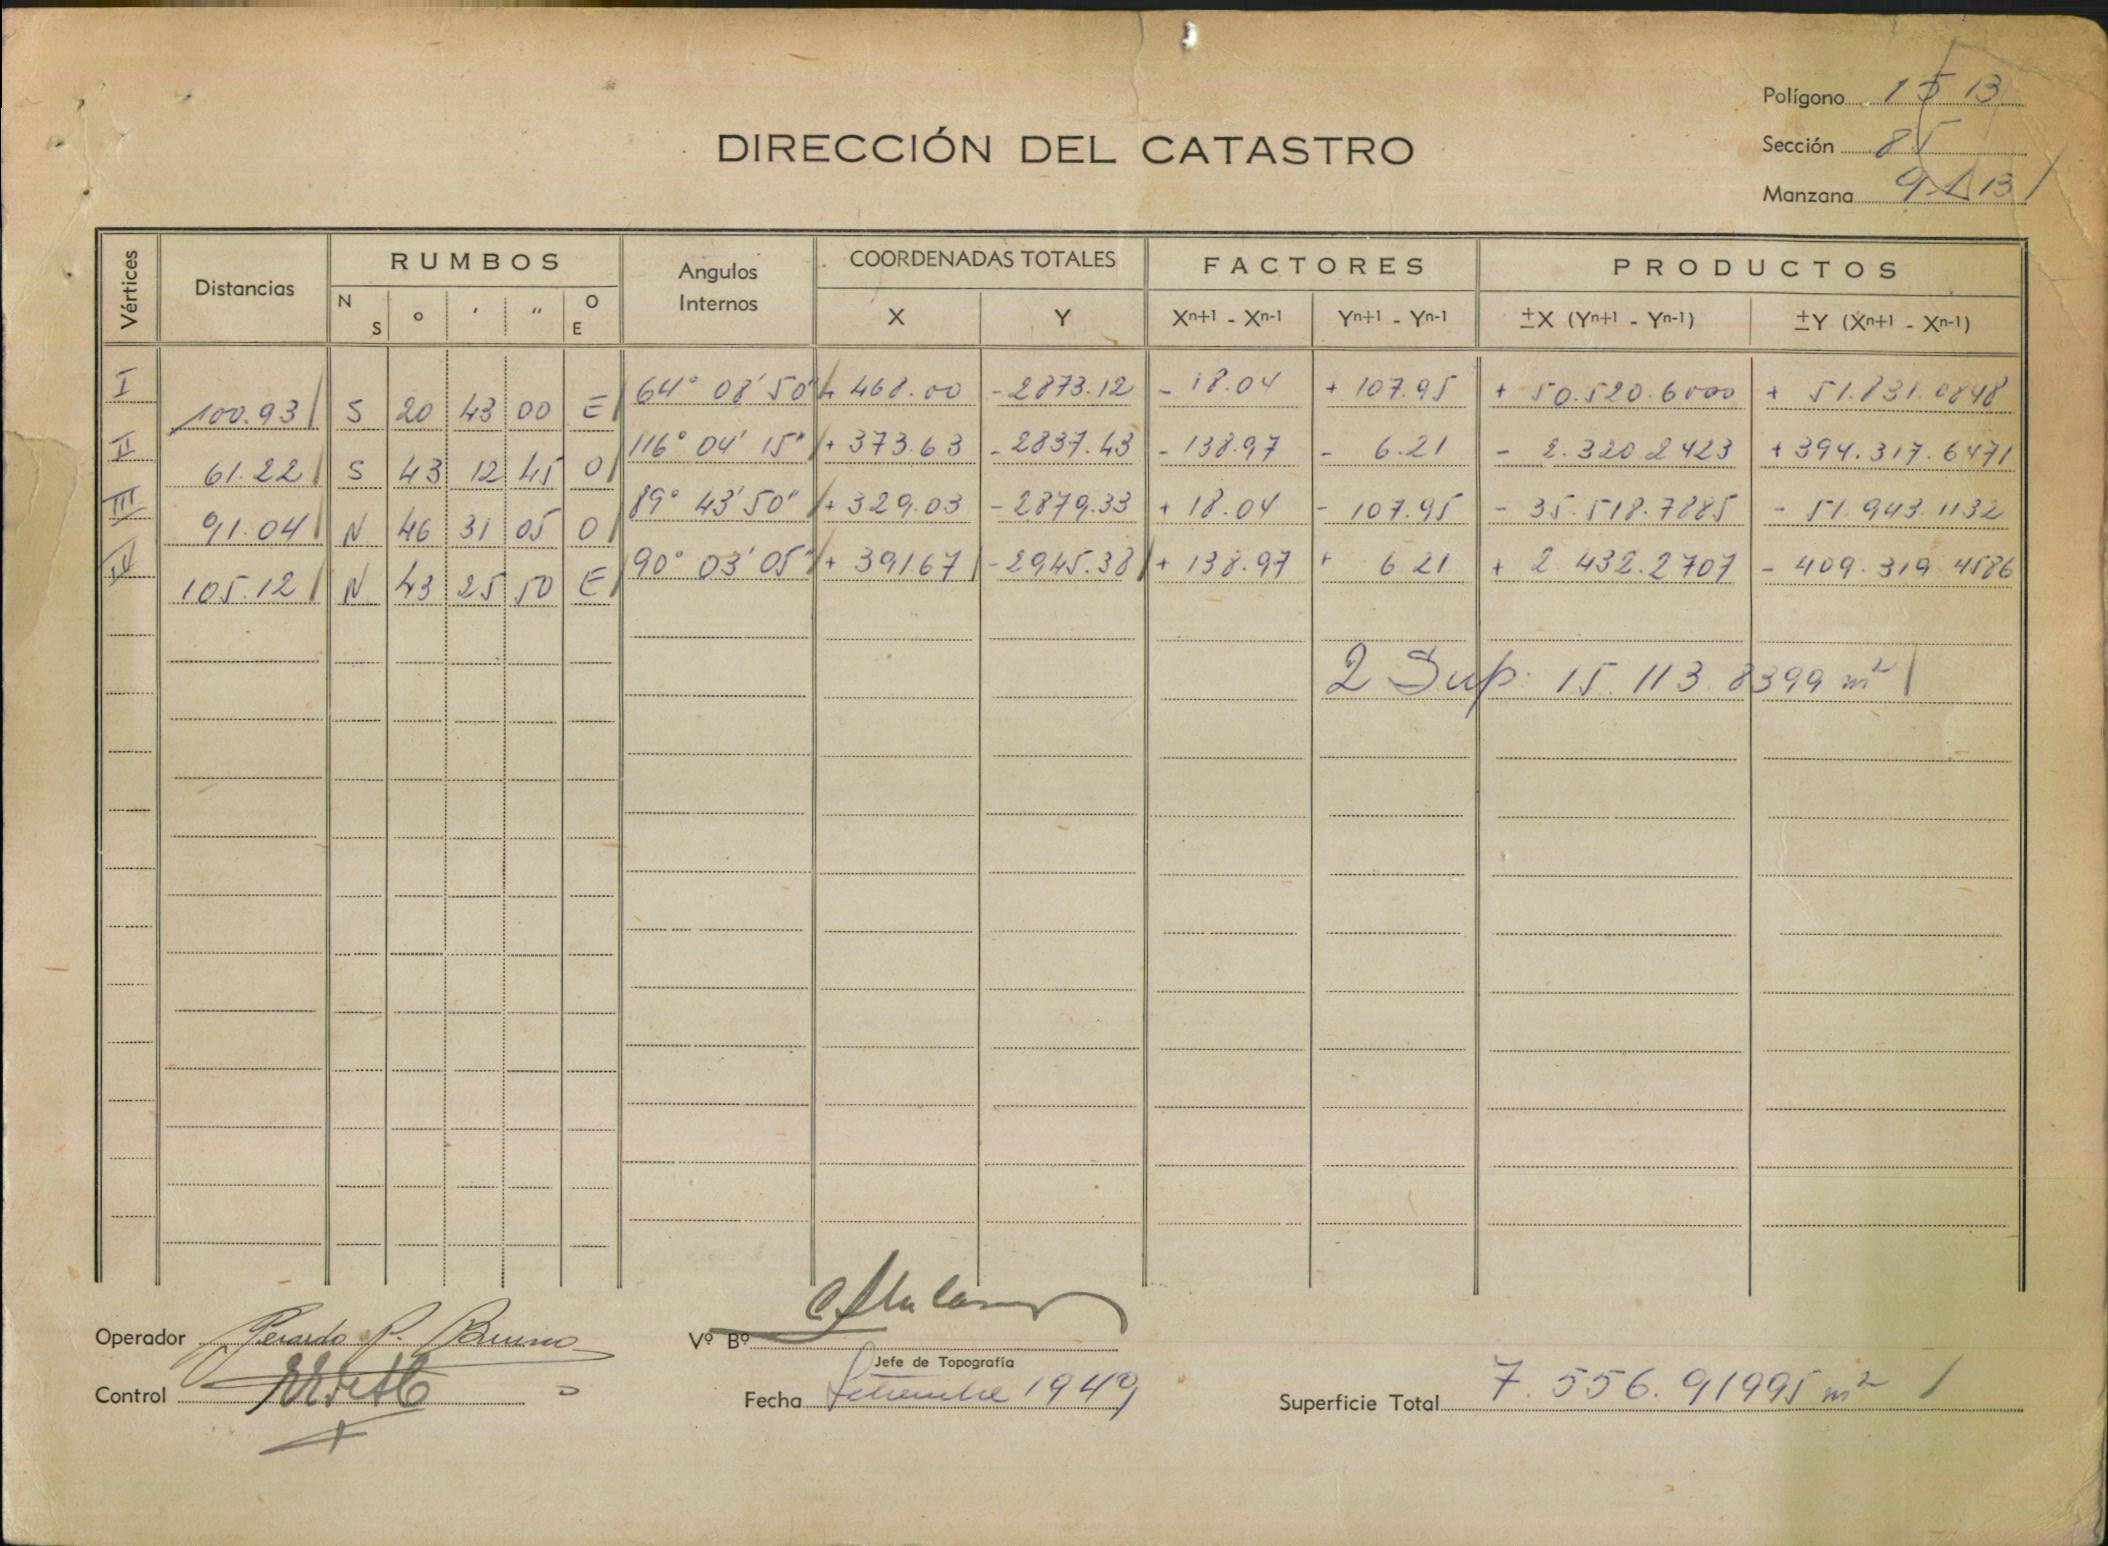 Polígono 1 5 13
DIRECCIÓN DEL CATASTRO
Sección 85
Manzana
Vértices Distancias RUMBOS Angulos Internos COORDENADAS TOTALES FACTORES PRODUCTOS
N S ° ' " O E X Y Xn+1 - Xn-1 Yn+1 - Yn-1 ±X (Yn+1 - Yn-1) ±Y (Xn+1 - Xn-1)
I 64° 08' 50" + 468.00 - 2873.12 - 18.04 + 107.95 + 50.520.6000 + 51.831.0848
100.93 S 20 43 00 E
II 116° 04' 15" + 373.63 - 2837.43 - 138.97 - 6.21 - 2.320.2423 + 394.317.6471
61.22 S 43 12 45 O
III 89° 43' 50" + 329.03 - 2879.33 + 18.04 - 107.95 - 35.518.7885 - 51.943.1132
91.04 N 46 31 05 O
IV 90° 03' 05" + 391.67 - 2945.38 + 138.97 + 6.21 + 2.432.2707 - 409.319.4586
105.12 N 43 25 50 E
2 Sup: 15.113.8399 m²
Operador Gerardo P. Bruno
Vº Bº
Jefe de Topografía
Control
Fecha Setiembre 1949
Superficie Total 7.556.91995 m²